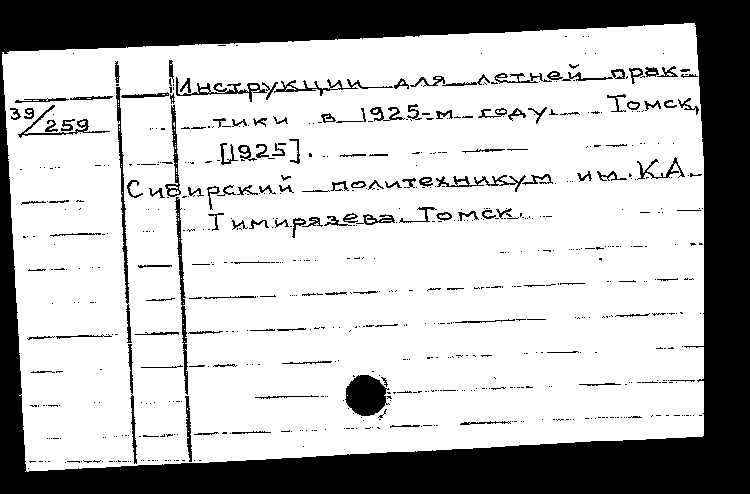 Инструкции для летней прак=
39/259
тики в 1925-м году. Томск,
[1925].
Сибирский политехникум им. К.А.
Тимирязева. Томск.